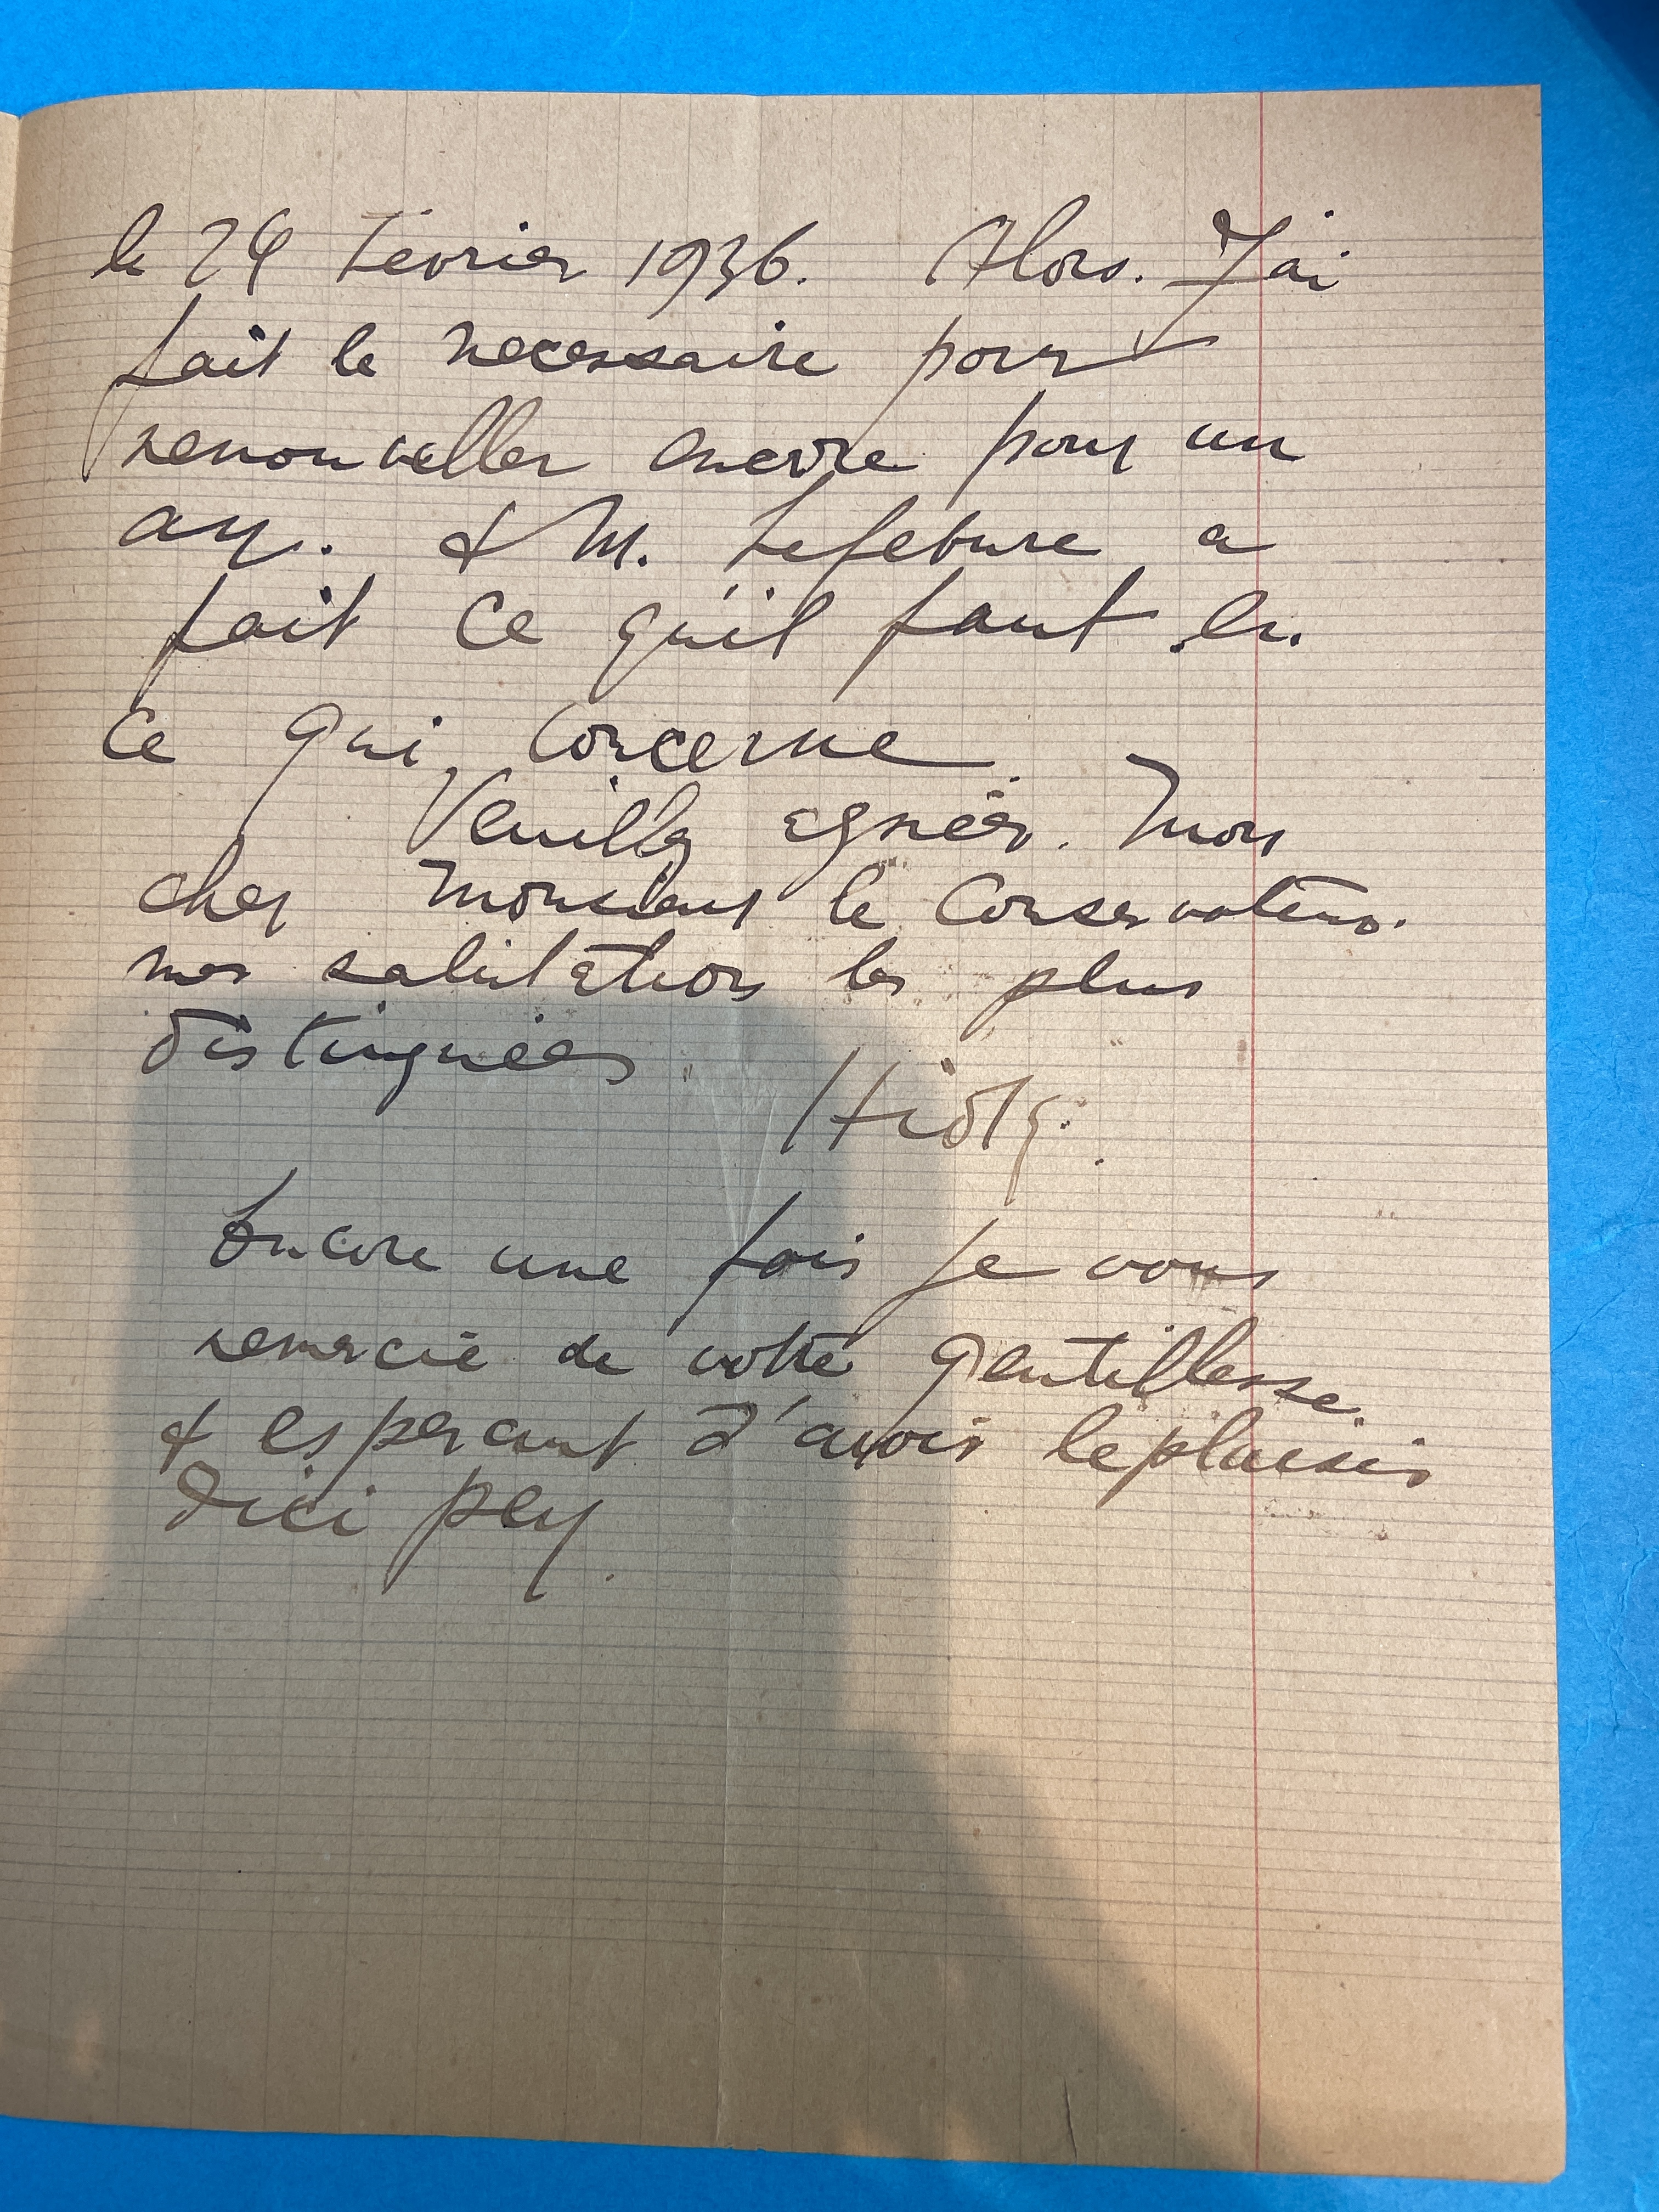 le 24 Fevrier 1936. Alors. J'ai
fait le necessaire pour
renouveller encore pour un
an. & M. Lefebure a
fait ce qu'il faut en
ce qui concerne.
Veuillez agréer. Mon
cher Monsieur le Conservateur.
mes salutations les plus
distinguées
Encore une fois je vous
remercie de votre gentillesse.
& esperant d'avoir le plaisir
d'ici peu.